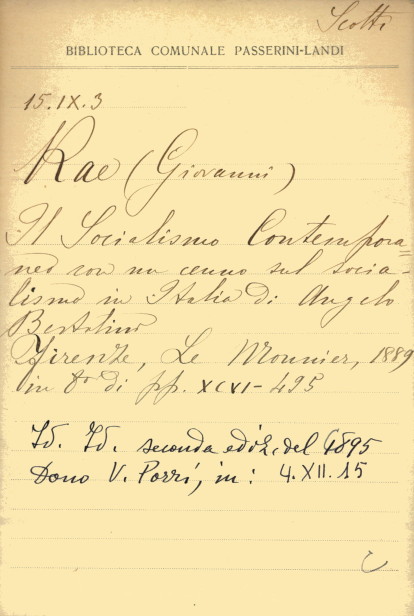 Scotti
BIBLIOTECA COMUNALE PASSERINI-LANDI
15.IX.3
Rae (Giovanni)
Il Socialismo Contempora=
neo con un cenno sul socia-
lismo in Italia di Angelo
Bertolini
Firenze, Le Monnier, 1889
in 8° di pp. XCVI-495
Id. Id. seconda ediz. del 1895
Dono V. Porri, in: 4.XII.15